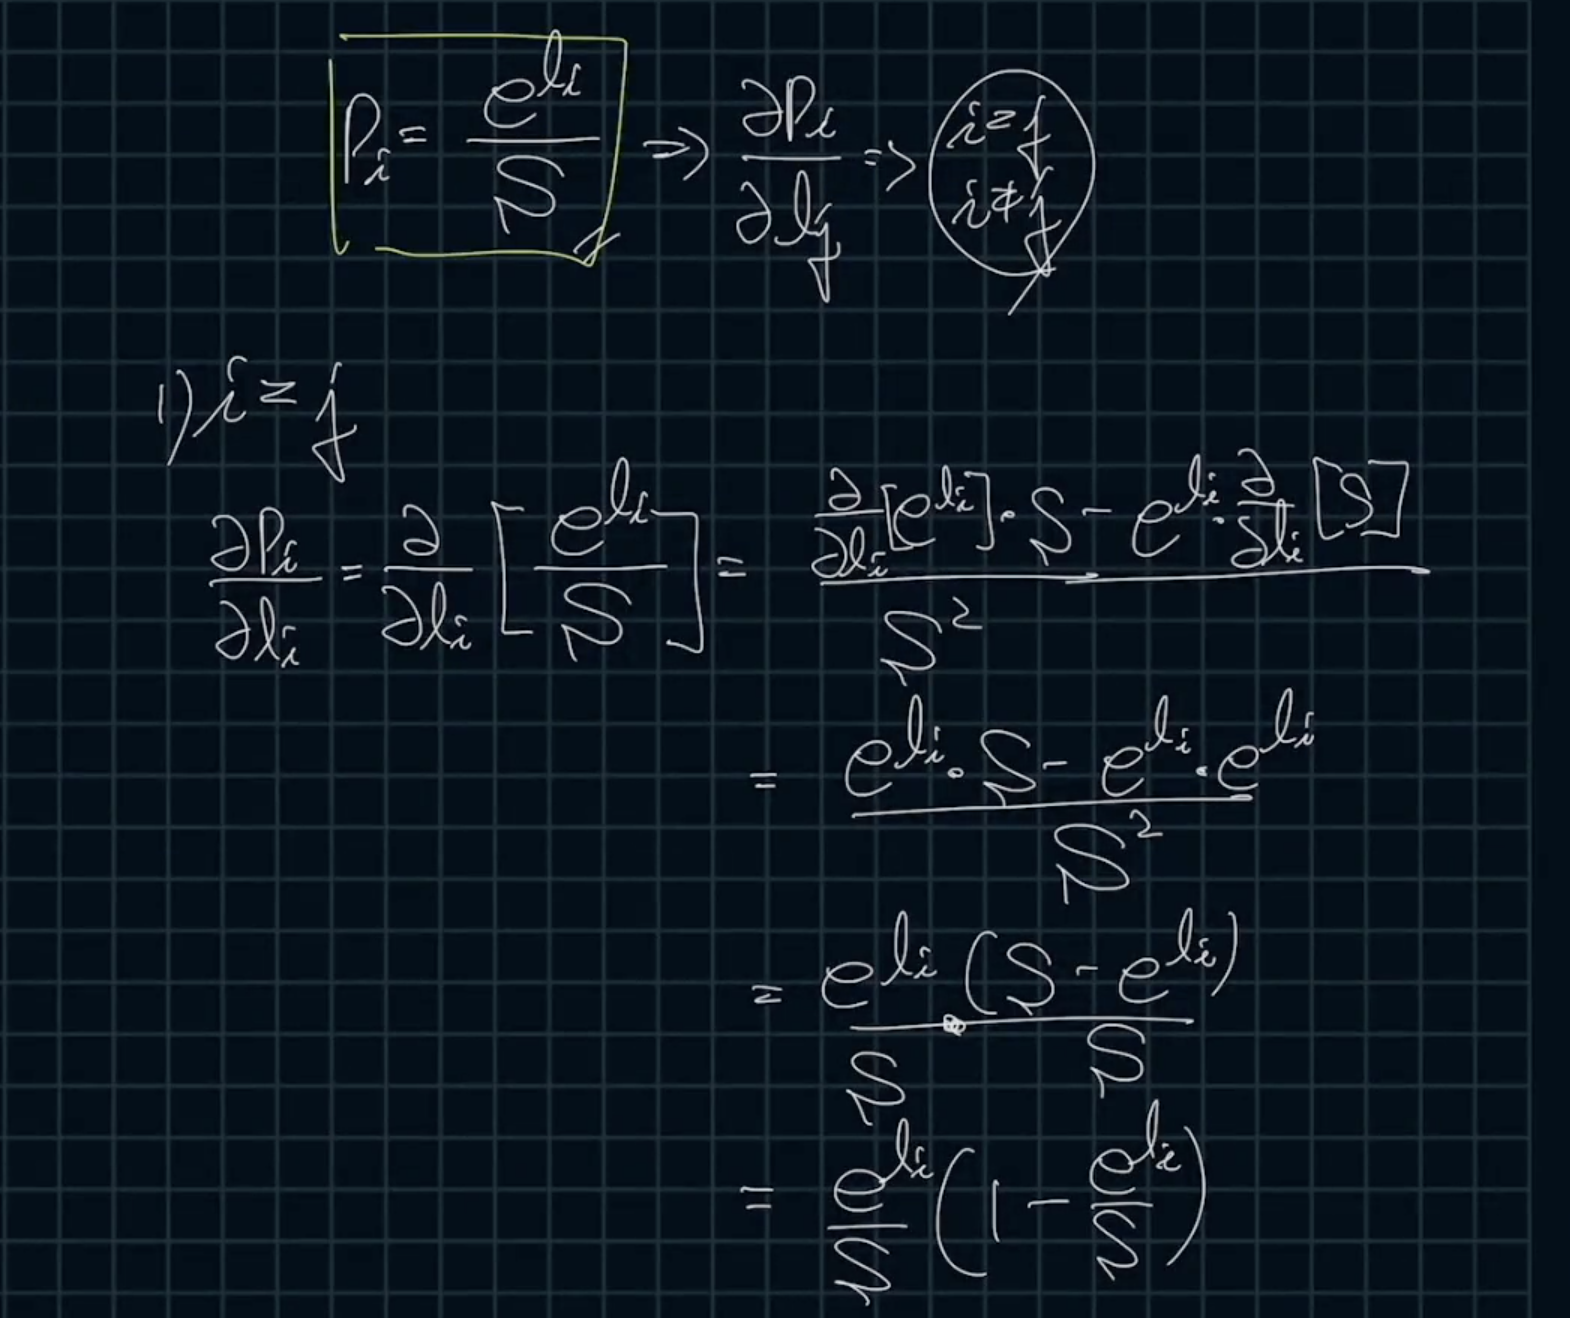 P_i = e^{l_i} / S => ∂P_i / ∂l_j => i = j
i ≠ j
1) i = j
∂P_i / ∂l_i = ∂ / ∂l_i [ e^{l_i} / S ] = ( ∂/∂l_i [e^{l_i}] · S - e^{l_i} · ∂/∂l_i [S] ) / S^2
= ( e^{l_i} · S - e^{l_i} · e^{l_i} ) / S^2
= e^{l_i} (S - e^{l_i}) / S S
= e^{l_i} / S ( 1 - e^{l_i} / S )